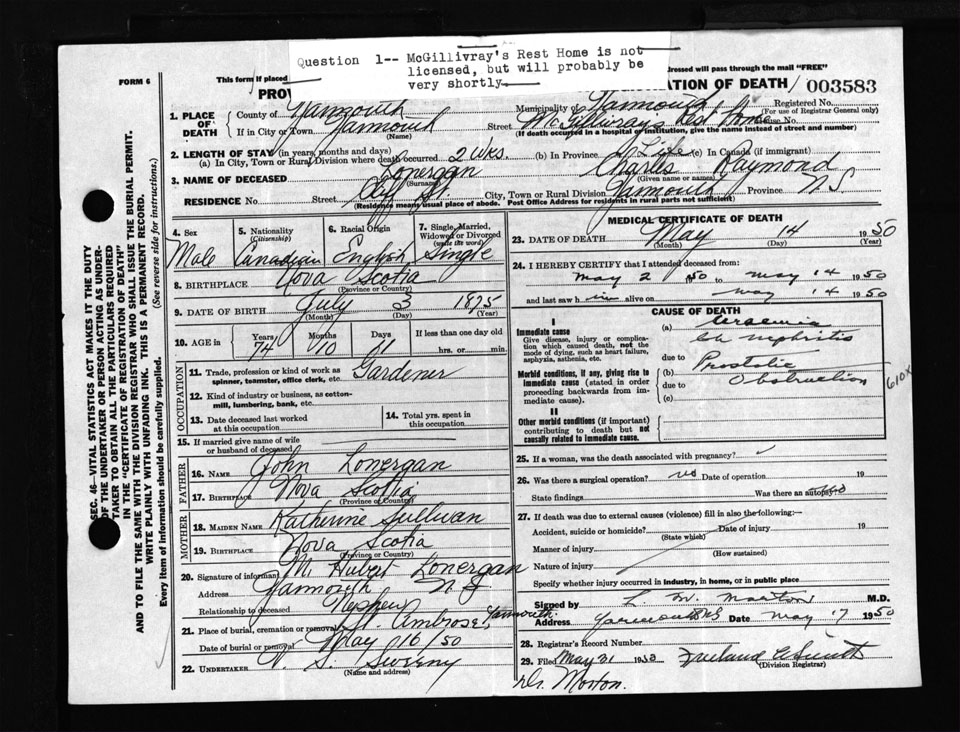 Question 1-- McGillivray's Rest Home is not
licensed, but will probably be
very shortly
FORM 6
This form if placed
dressed will pass through the mail "FREE"
PROV
ATION OF DEATH
003583
1. PLACE OF DEATH County of Yarmouth Municipality of Yarmouth Registered No.
(For use of Registrar General only)
If in City or Town Yarmouth Street McGillivray's Rest Home
(Name) (If death occurred in a hospital or institution, give the name instead of street and number)
2. LENGTH OF STAY (in years, months and days)
(a) In City, Town or Rural Division where death occurred 2 wks. (b) In Province Life (c) In Canada (if immigrant)
3. NAME OF DECEASED Lonergan Charles Raymond
(Surname) (Given name or names)
RESIDENCE No. Street Cliff St City, Town or Rural Division Yarmouth Province N.S.
(Residence means usual place of abode. Post Office Address for residents in rural parts not sufficient)
4. Sex 5. Nationality (Citizenship) 6. Racial Origin 7. Single, Married, Widowed or Divorced (write the word)
Male Canadian English Single
8. BIRTHPLACE Nova Scotia
(Province or Country)
9. DATE OF BIRTH July 3 1875
(Month) (Day) (Year)
10. AGE in Years Months Days If less than one day old
74 10 11 hrs. or min.
OCCUPATION
11. Trade, profession or kind of work as Gardener
spinner, teamster, office clerk, etc.
12. Kind of industry or business, as cotton-
mill, lumbering, bank, etc.
13. Date deceased last worked
at this occupation
14. Total yrs. spent in
this occupation
15. If married give name of wife
or husband of deceased
FATHER
16. NAME John Lonergan
17. BIRTHPLACE Nova Scotia
(Province or Country)
MOTHER
18. MAIDEN NAME Katherine Sullivan
19. BIRTHPLACE Nova Scotia
(Province or Country)
20. Signature of informant M. Hubert Lonergan
Address Yarmouth N.S.
Relationship to deceased Nephew
21. Place of burial, cremation or removal St. Ambrose, Yarmouth
Date of burial or removal May 16/50
22. UNDERTAKER V. S. Sweeny
(Name and address)
MEDICAL CERTIFICATE OF DEATH
23. DATE OF DEATH May 14 1950
(Month) (Day) (Year)
24. I HEREBY CERTIFY that I attended deceased from:
May 2 1950 to May 14 1950
and last saw him alive on May 14 1950
CAUSE OF DEATH
I
Immediate cause
Give disease, injury or complica-
tion which caused death, not the
mode of dying, such as heart failure,
asphyxia, asthenia, etc.
(a) Uraemia
Ch nephritis
due to
Morbid conditions, if any, giving rise to
immediate cause (stated in order
proceeding backwards from im-
mediate cause).
(b) Prostatic
due to Obstruction
(c)
610X
II
Other morbid conditions (if important)
contributing to death but not
causally related to immediate cause.
25. If a woman, was the death associated with pregnancy?
26. Was there a surgical operation? no Date of operation 19
State findings Was there an autopsy? no
27. If death was due to external causes (violence) fill in also the following:—
Accident, suicide or homicide? Date of injury 19
(State which)
Manner of injury
(How sustained)
Nature of injury
Specify whether injury occurred in industry, in home, or in public place
Signed by L. M. Morton M.D.
Address Yarmouth NS Date May 17 1950
28. Registrar's Record Number
29. Filed May 31 1950
(Division Registrar)
Dr. Morton.
SEC. 46—VITAL STATISTICS ACT MAKES IT THE DUTY
OF THE UNDERTAKER OR PERSON ACTING AS UNDER-
TAKER TO OBTAIN ALL THE PARTICULARS REQUIRED
IN THE "CERTIFICATE OF REGISTRATION OF DEATH"
AND TO FILE THE SAME WITH THE DIVISION REGISTRAR WHO SHALL ISSUE THE BURIAL PERMIT.
WRITE PLAINLY WITH UNFADING INK. THIS IS A PERMANENT RECORD.
Every item of information should be carefully supplied. (See reverse side for instructions.)